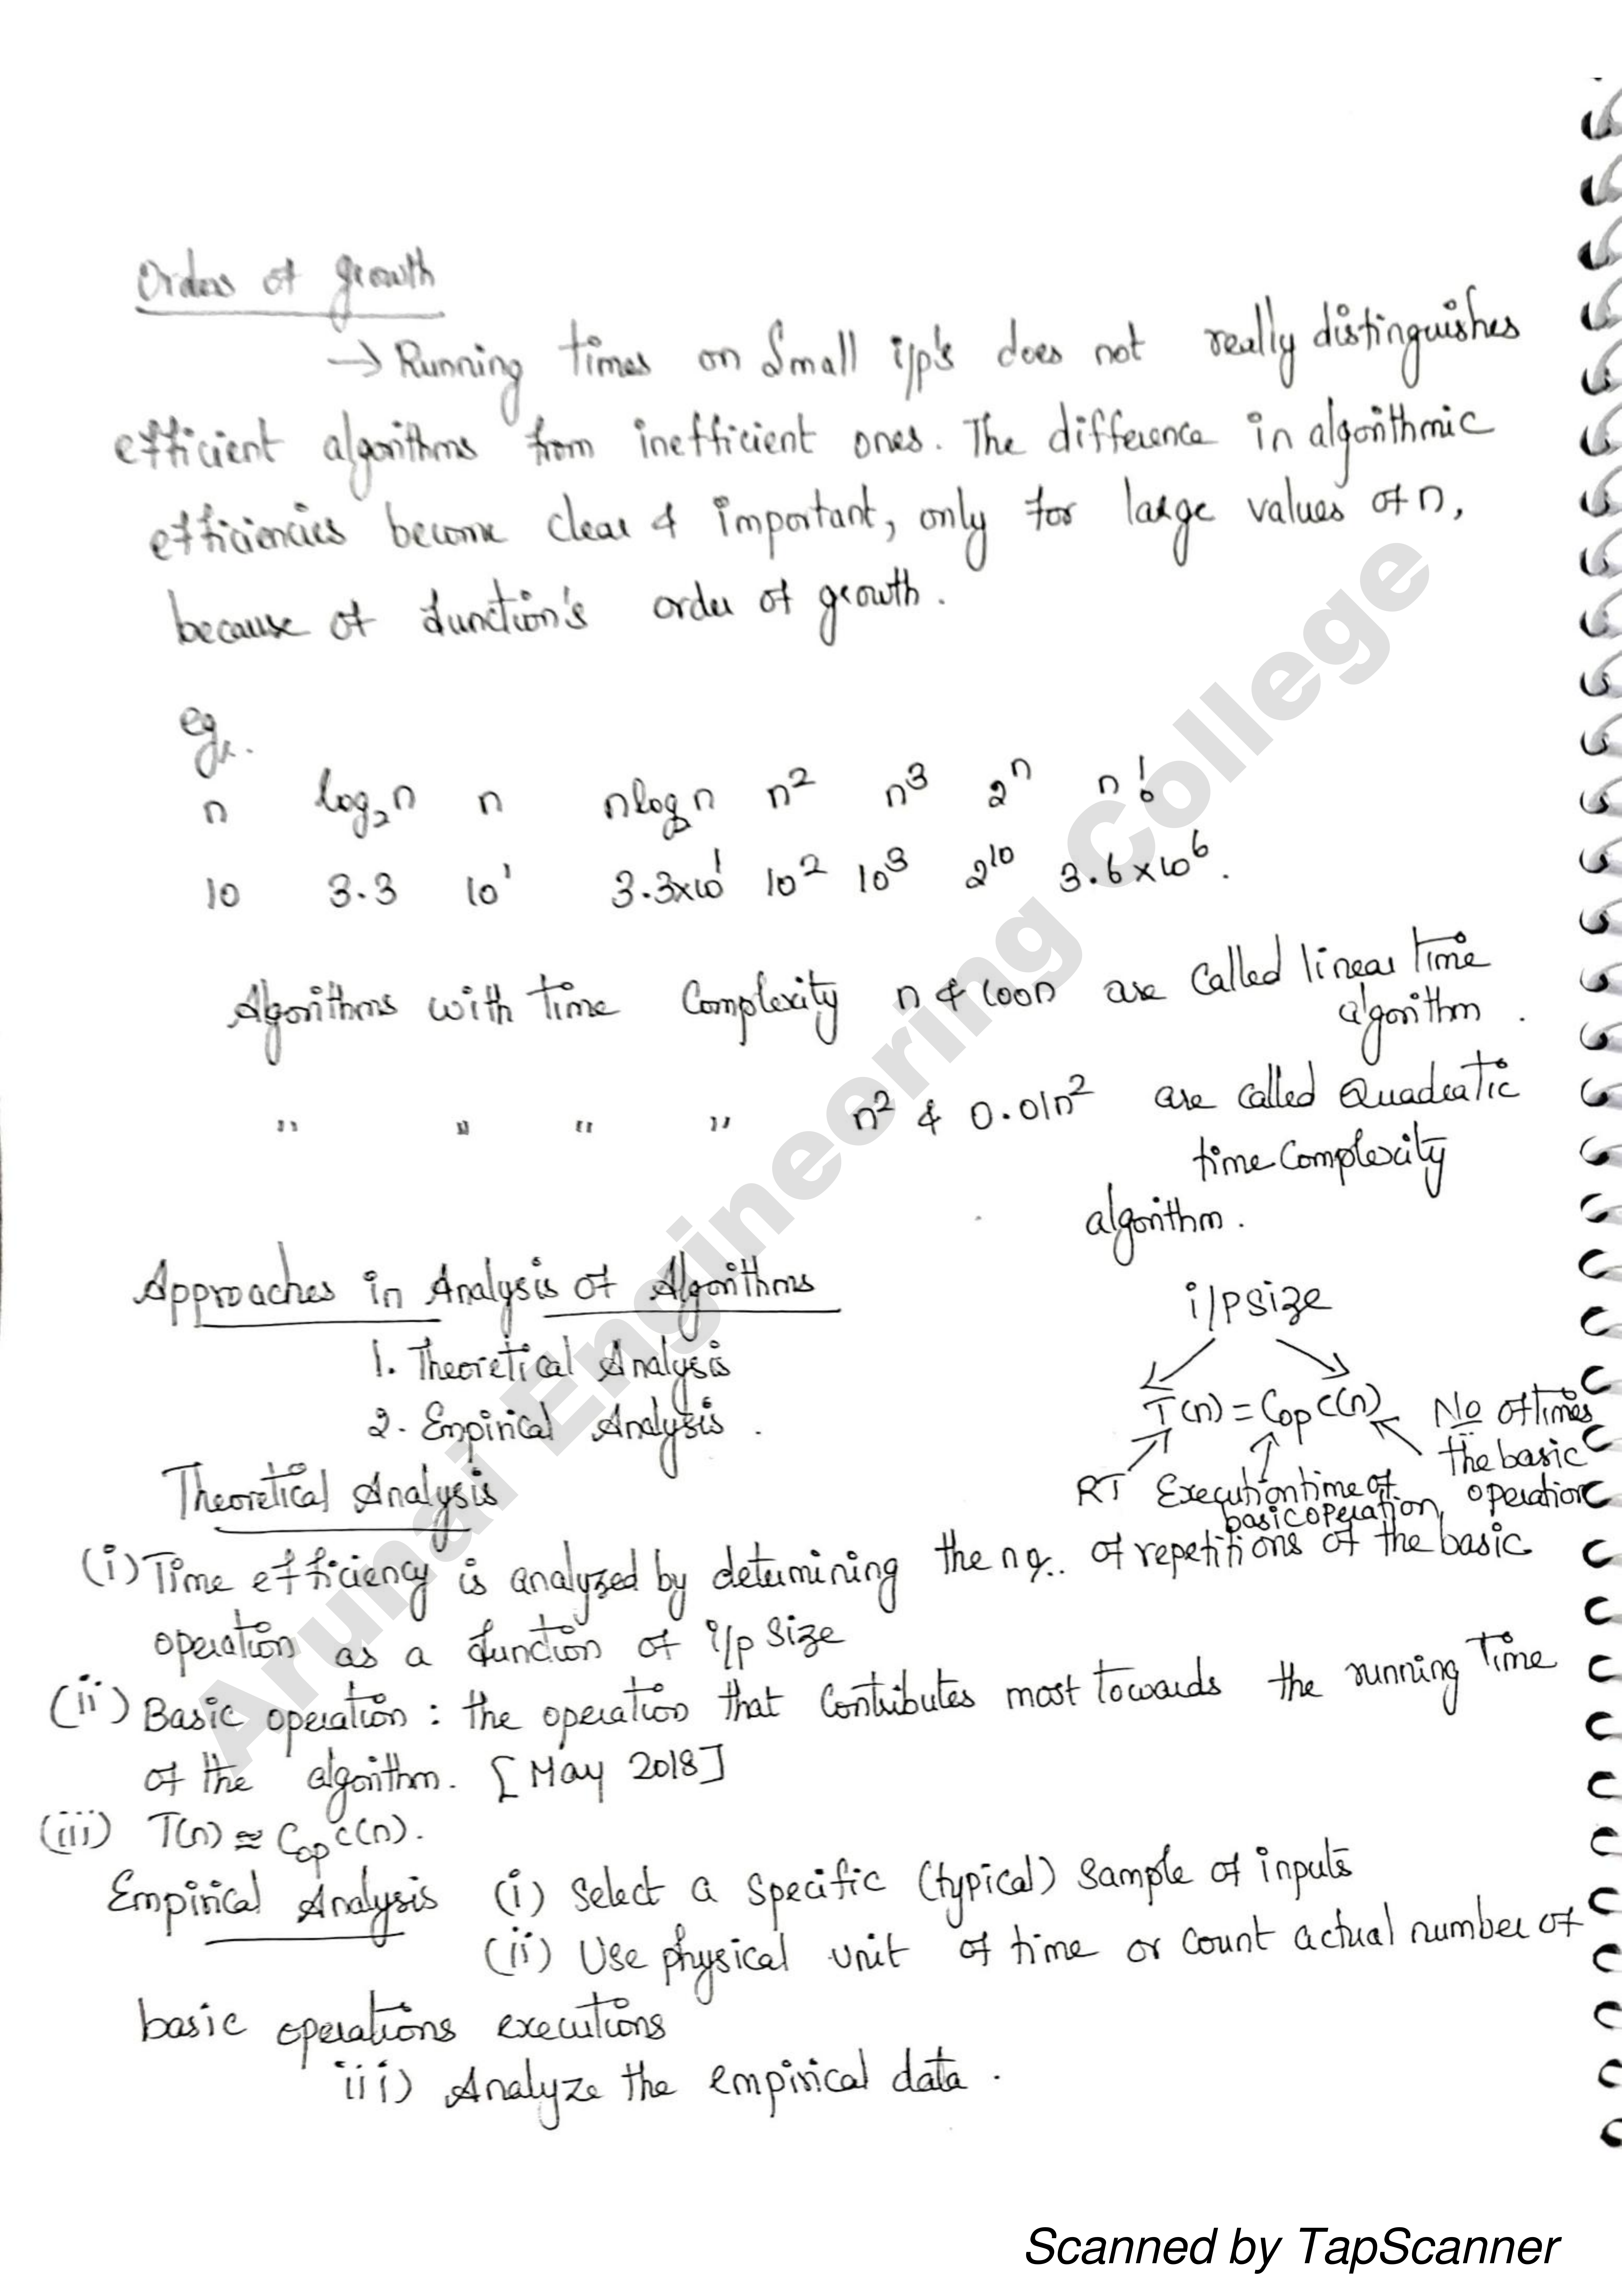 Orders of growth
→ Running times on Small i/p's does not really distinguishes
efficient algorithms from inefficient ones. The difference in algorithmic
efficiencies become clear & important, only for large values of n,
because of function's order of growth.
eg:.
n log₂n n nlog₂n n² n³ 2ⁿ n!
10 3.3 10¹ 3.3x10¹ 10² 10³ 2¹⁰ 3.6x10⁶.
Algorithms with time Complexity n & 100n are called linear time
algorithm.
" " " " n² & 0.01n² are called Quadratic
time Complexity
algorithm.
Approaches in Analysis of Algorithms
1. Theoretical Analysis
2. Empirical Analysis.
i/p size
T(n) = Cop C(n)
RT
Execution time of
basic operation,
No of times
the basic
operation
Theoretical Analysis
(i) Time efficiency is analyzed by determining the no. of repetitions of the basic
operation as a function of i/p size
(ii) Basic operation : the operation that Contributes most towards the running time
of the algorithm. [May 2018]
(iii) T(n) ≈ Cop C(n).
Empirical Analysis (i) Select a specific (typical) sample of inputs
(ii) Use physical unit of time or count actual number of
basic operations executions
iii) Analyze the empirical data.
Arunai Engineering College
Scanned by TapScanner